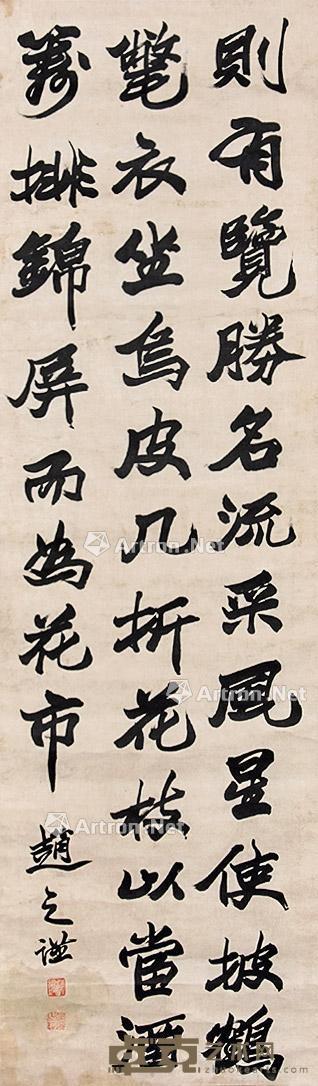 則有覽勝名流采風星使披鶴
氅衣坐烏皮几折花枝以當酒
籌排錦屏而為花市
趙之謙
Artron.Net
Artron.Net
Artron.Net
Artron.Net